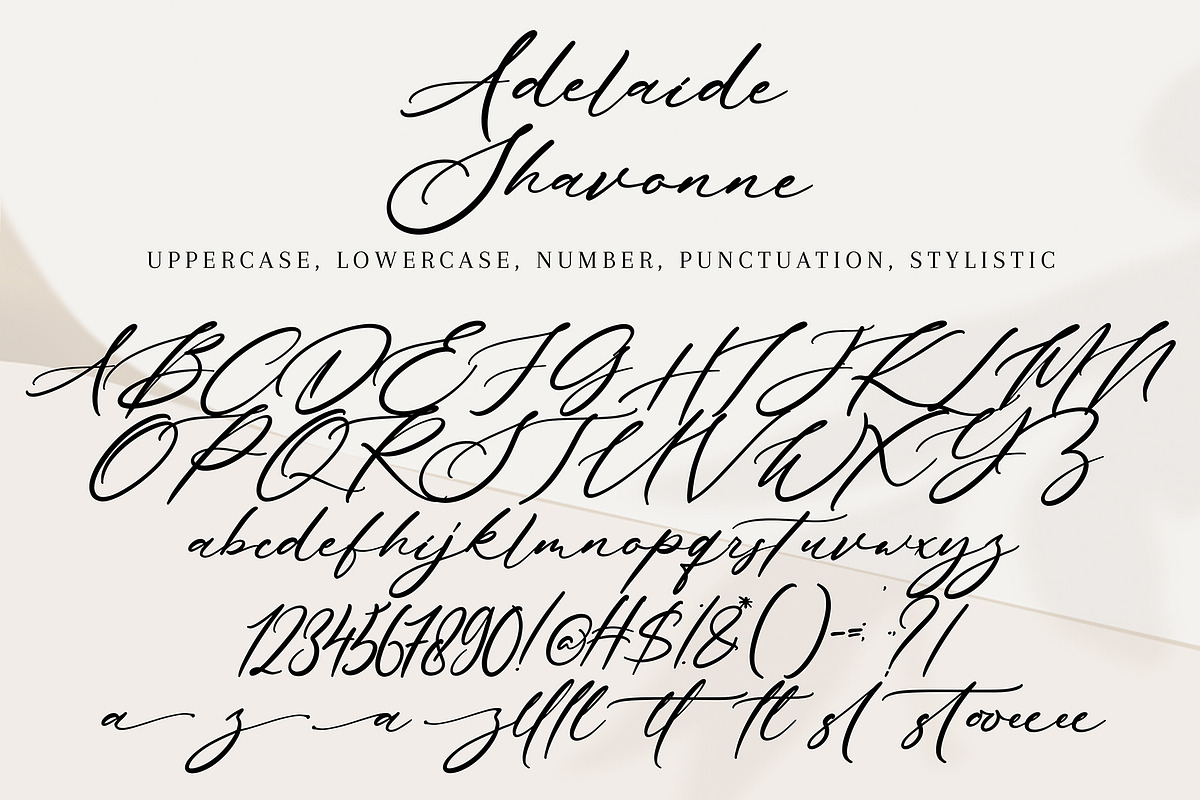 Adelaide
Shavonne
UPPERCASE, LOWERCASE, NUMBER, PUNCTUATION, STYLISTIC
ABCDEFGHIJKLMN
OPQRSTUVWXYZ
abcdefhijklmnopqrstuvwxyz
1234567890!@#$%&*()-=;:'.,?/
a z a z ll ll tt tt st st oo ee ee